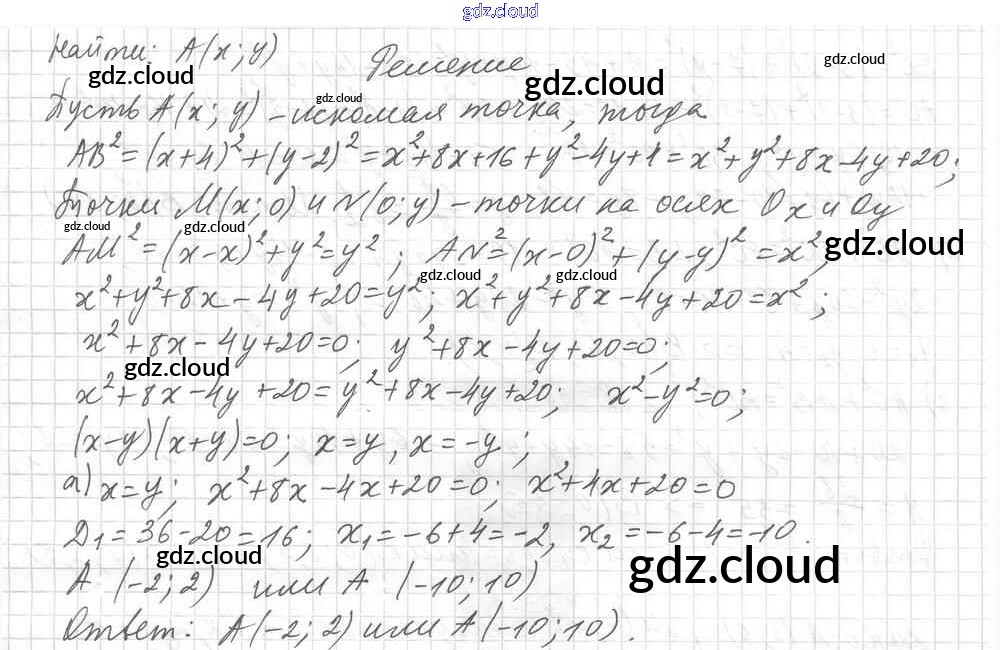 gdz.cloud
Найти: A(x; y)
gdz.cloud
Решение
gdz.cloud
gdz.cloud
gdz.cloud
Пусть A(x; y) – искомая точка, тогда
AB² = (x+4)² + (y-2)² = x²+8x+16+y²-4y+1 = x²+y²+8x-4y+20;
Точки M(x; 0) и N(0; y) – точки на осях Ox и Oy
gdz.cloud
gdz.cloud
gdz.cloud
AM² = (x-x)²+y²=y²; AN²=(x-0)²+(y-y)²=x²;
gdz.cloud
gdz.cloud
x²+y²+8x-4y+20=y²; x²+y²+8x-4y+20=x²;
x²+8x-4y+20=0; y²+8x-4y+20=0;
gdz.cloud
x²+8x-4y+20=y²+8x-4y+20; x²-y²=0;
(x-y)(x+y)=0; x=y, x=-y;
а) x=y; x²+8x-4x+20=0; x²+4x+20=0
D₁=36-20=16; x₁=-6+4=-2, x₂=-6-4=-10.
gdz.cloud
gdz.cloud
A (-2; 2) или A (-10; 10)
Ответ: A(-2; 2) или A(-10; 10).